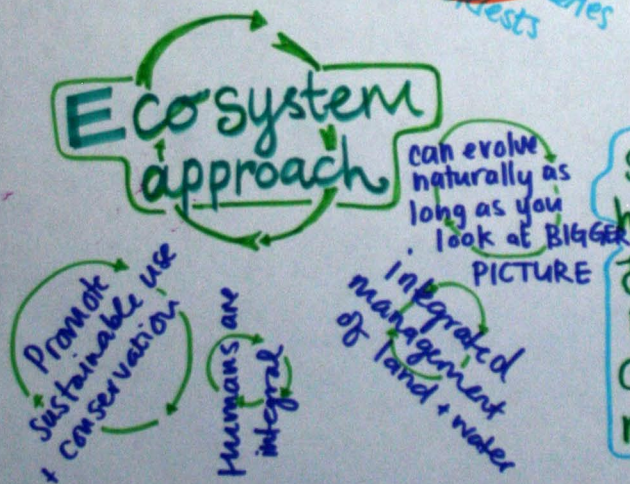 Ecosystem
approach
can evolve
naturally as
long as you
look at BIGGER
PICTURE
Promote
sustainable use
+ conservation
Humans are
integral
integrated
management
of land + water